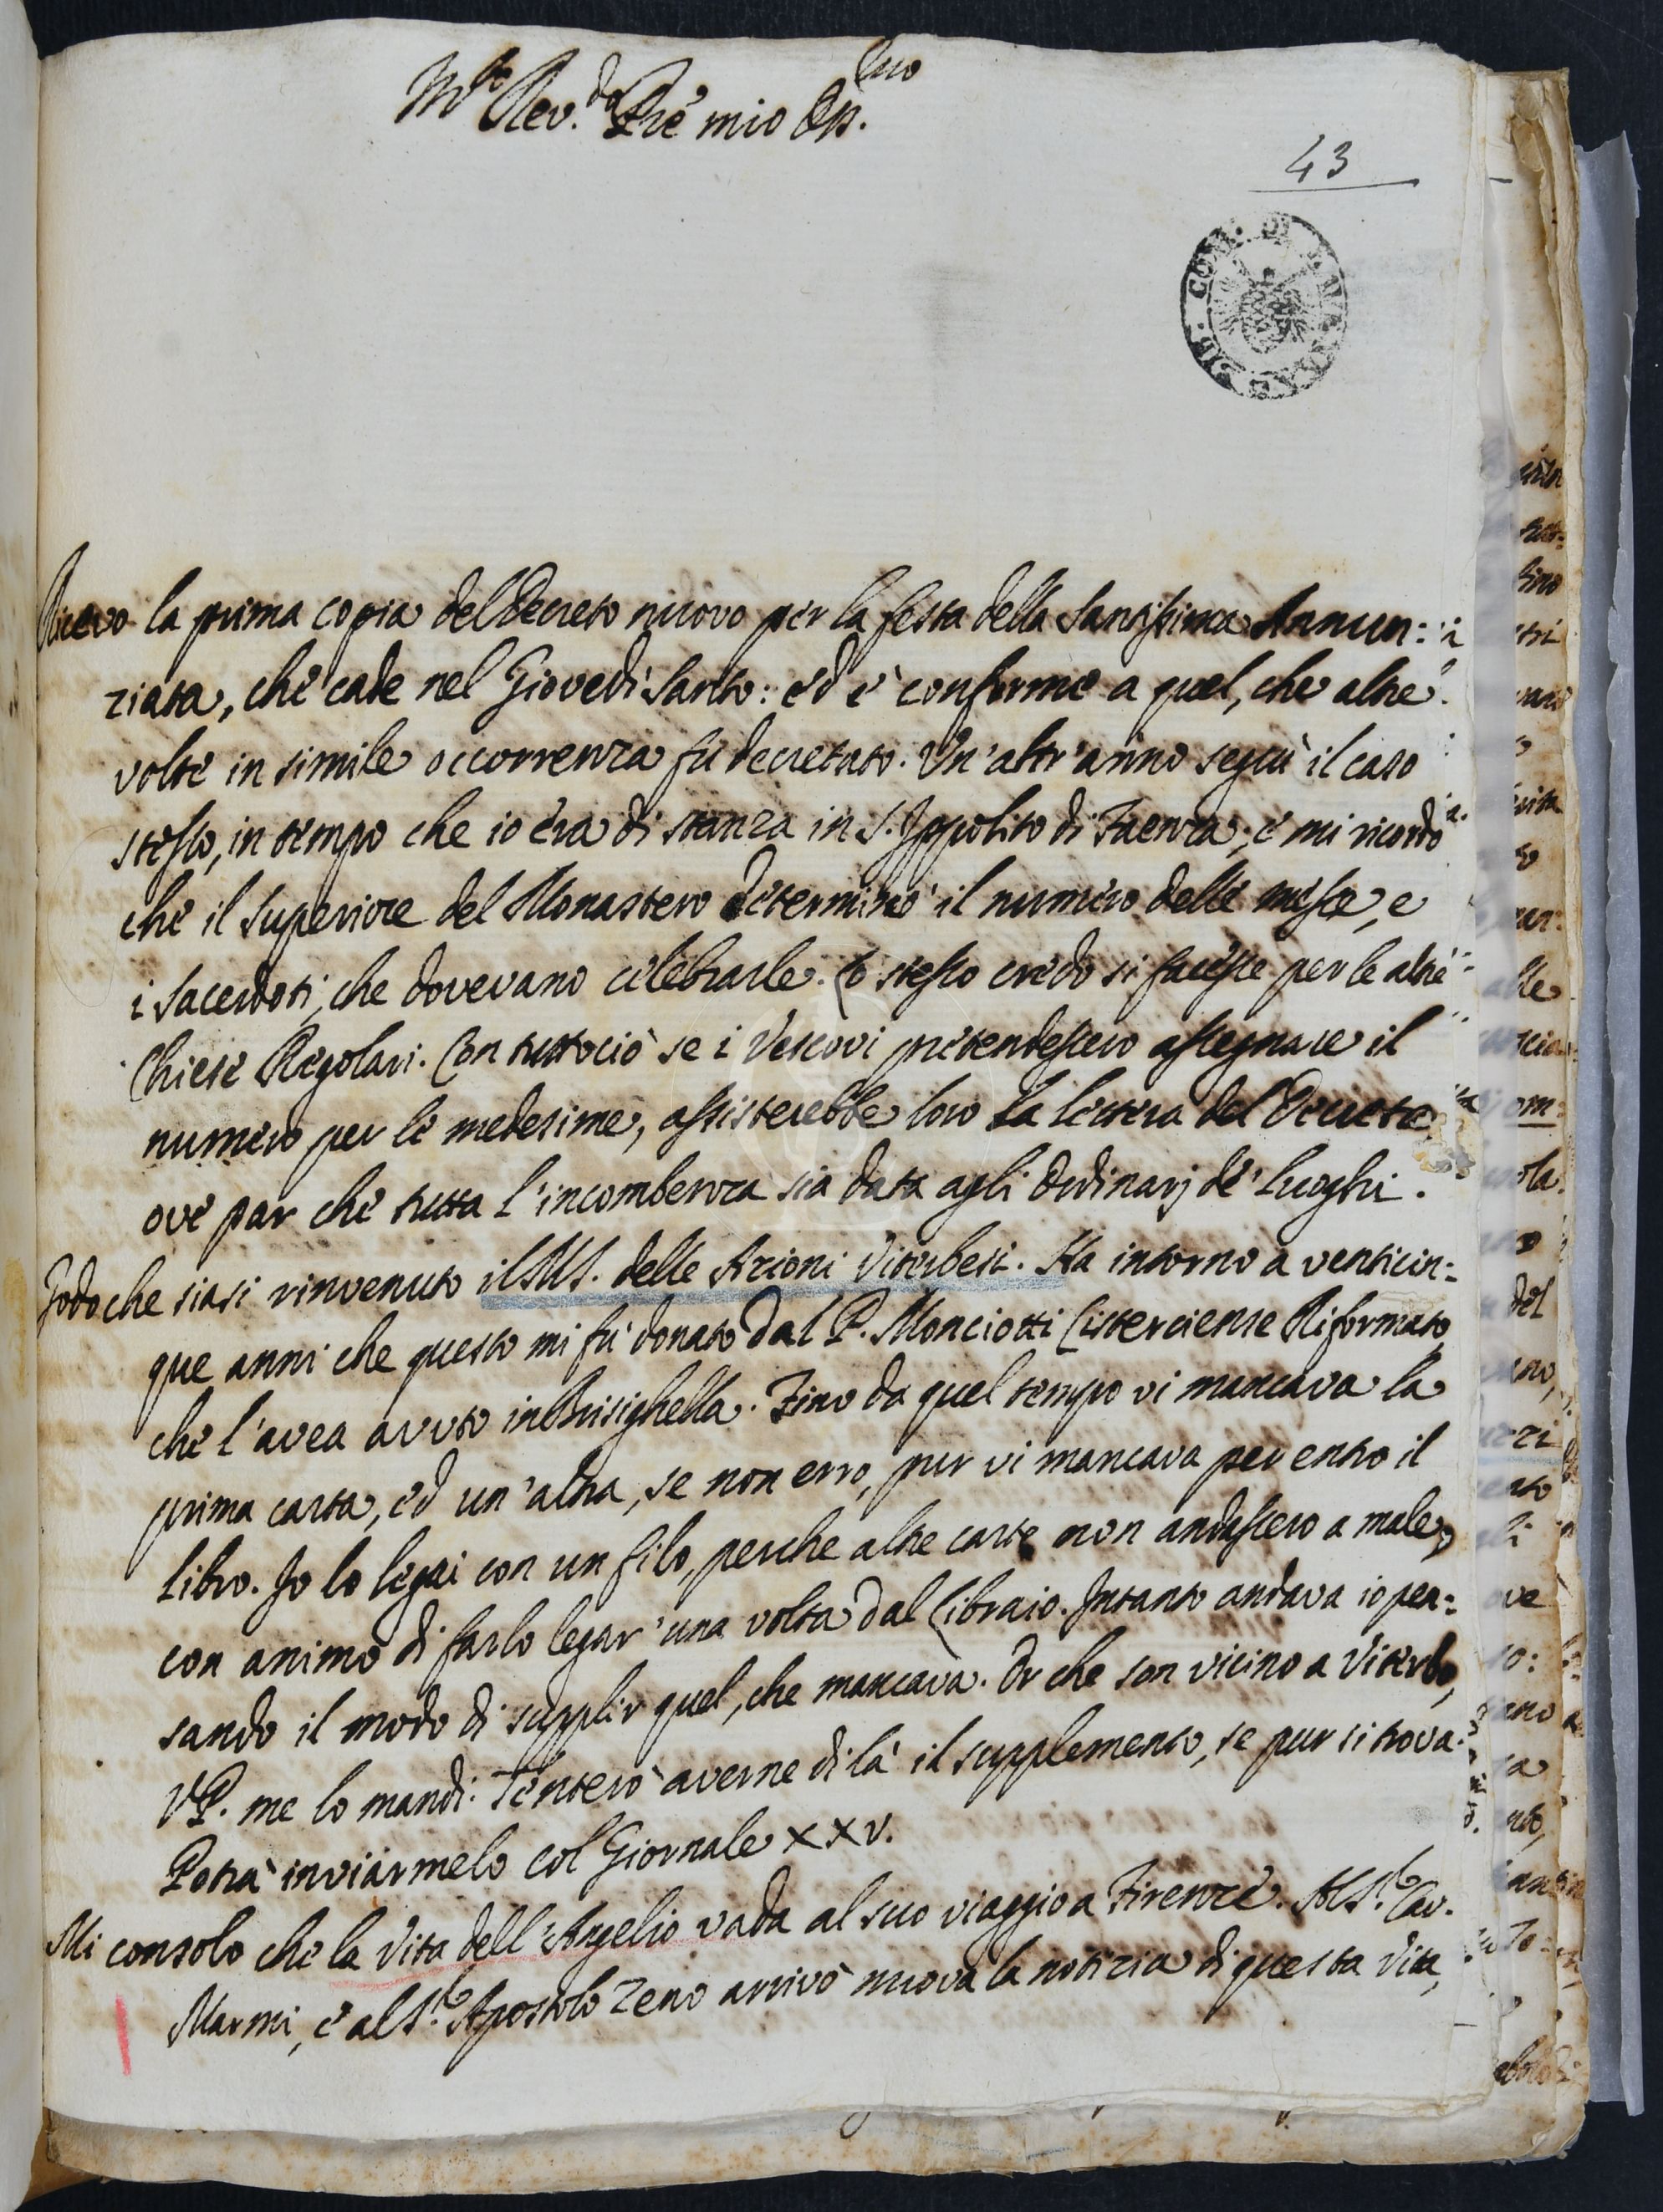 M.to Rev.do Pre mio Oss.mo
43
Ricevo la prima copia del Decreto nuovo per la festa della Santissima Annun:
ziata, che cade nel Giovedì Santo: ed è conforme a quel, che altre
volte in simile occorrenza fù decretato. Un'altr'anno seguì il caso
stesso, in tempo che io era di stanza in S. Ippolito di Faenza; e mi ricordo
che il Superiore del Monastero determinò il numero delle messe, e
i Sacerdoti, che dovevano celebrarle. Lo stesso credo si facesse per le altre
Chiese Regolari. Con tuttociò se i Vescovi pretendessero assegnare il
numero per le medesime, assisterebbe loro la lettera del Decreto
ove par che tutta l'incombenza sia data agli Ordinarj de' Luoghi.
Godo che siasi rinvenuto il MS. delle Azioni Viterbesi. Ha intorno a venticin:
que anni che questo mi fù donato dal P. Monciotti Cisterciense Riformato,
che l'avea avuto in Brisighella. Fino da quel tempo vi mancava la
prima carta, ed un'altra, se non erro, pur vi mancava per entro il
libro. Io lo legai con un filo, perche altre carte non andassero a male,
con animo di farlo legar'una volta dal Libraio. Intanto andava io pen:
sando il modo di supplir quel, che mancava. Or che son vicino a Viterbo,
VP. me lo mandi. Tenterò averne di là il supplemento, se pur si trova.
Potrà inviarmelo col Giornale XXV.
Mi consolo che la Vita dell'Angelio vada al suo viaggio a Firenze. Al S.r Cav.
Marmi, e al S.r Apostolo Zeno arrivò nuova la notizia di questa Vita,